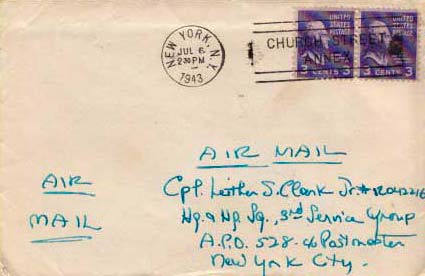 NEW YORK, N.Y.
JUL 6
230PM
1943
CHURCH STREET
ANNEX
UNITED STATES POSTAGE
3 CENTS 3
UNITED STATES POSTAGE
3 CENTS 3
AIR MAIL
AIR
MAIL
Cpl. Luther S. Clark Jr. #
Hq. & Hq. Sq., 3rd Service Group
A.P.O. 528 - c/o Postmaster
New York City.